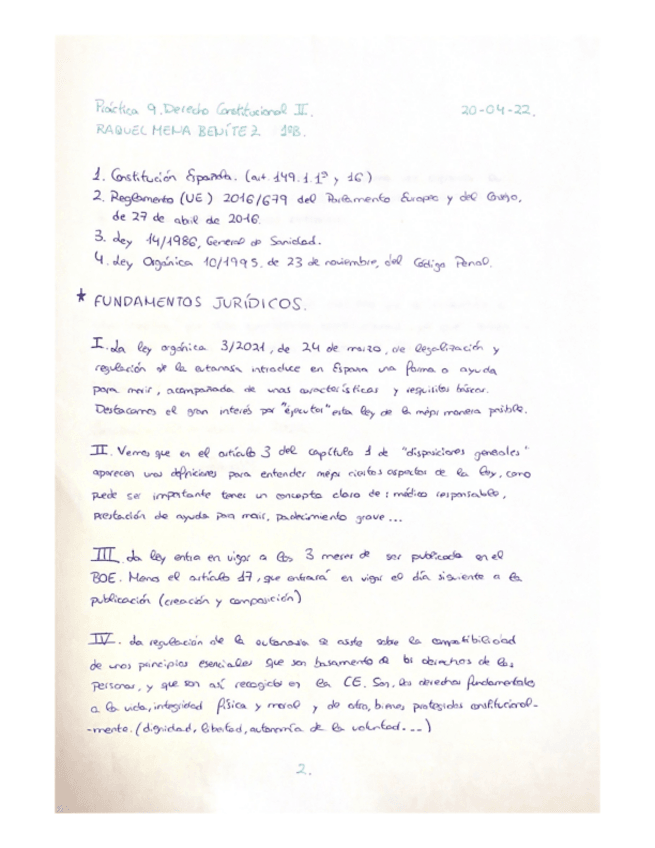 Práctica 9. Derecho Constitucional II. 20-04-22.
RAQUEL MENA BENÍTEZ 1ºB.
1. Constitución Española. (art. 149.1.1ª y 16)
2. Reglamento (UE) 2016/679 del Parlamento Europeo y del Consejo,
de 27 de abril de 2016.
3. Ley 14/1986, General de Sanidad.
4. Ley Orgánica 10/1995, de 23 de noviembre, del Código Penal.
* FUNDAMENTOS JURÍDICOS.
I. La ley orgánica 3/2021, de 24 de marzo, de legalización y
regulación de la eutanasia introduce en España una forma o ayuda
para morir, acompañada de unas características y requisitos básicos.
Destacamos el gran interés por "ejecutar" esta ley de la mejor manera posible.
II. Vemos que en el artículo 3 del capítulo 1 de "disposiciones generales"
aparecen unas definiciones para entender mejor ciertos aspectos de la ley, como
puede ser importante tener un concepto claro de: médico responsable,
prestación de ayuda para morir, padecimiento grave...
III. La ley entra en vigor a los 3 meses de ser publicada en el
BOE. Menos el artículo 17, que entrará en vigor el día siguiente a la
publicación (creación y composición)
IV. La regulación de la eutanasia se asienta sobre la compatibilidad
de unos principios esenciales que son basamento de los derechos de las
personas, y que son así recogidos en la CE. Son, los derechos fundamentales
a la vida, integridad física y moral y de otro, bienes protegidos constitucional-
-mente. (dignidad, libertad, autonomía de la voluntad...)
2.